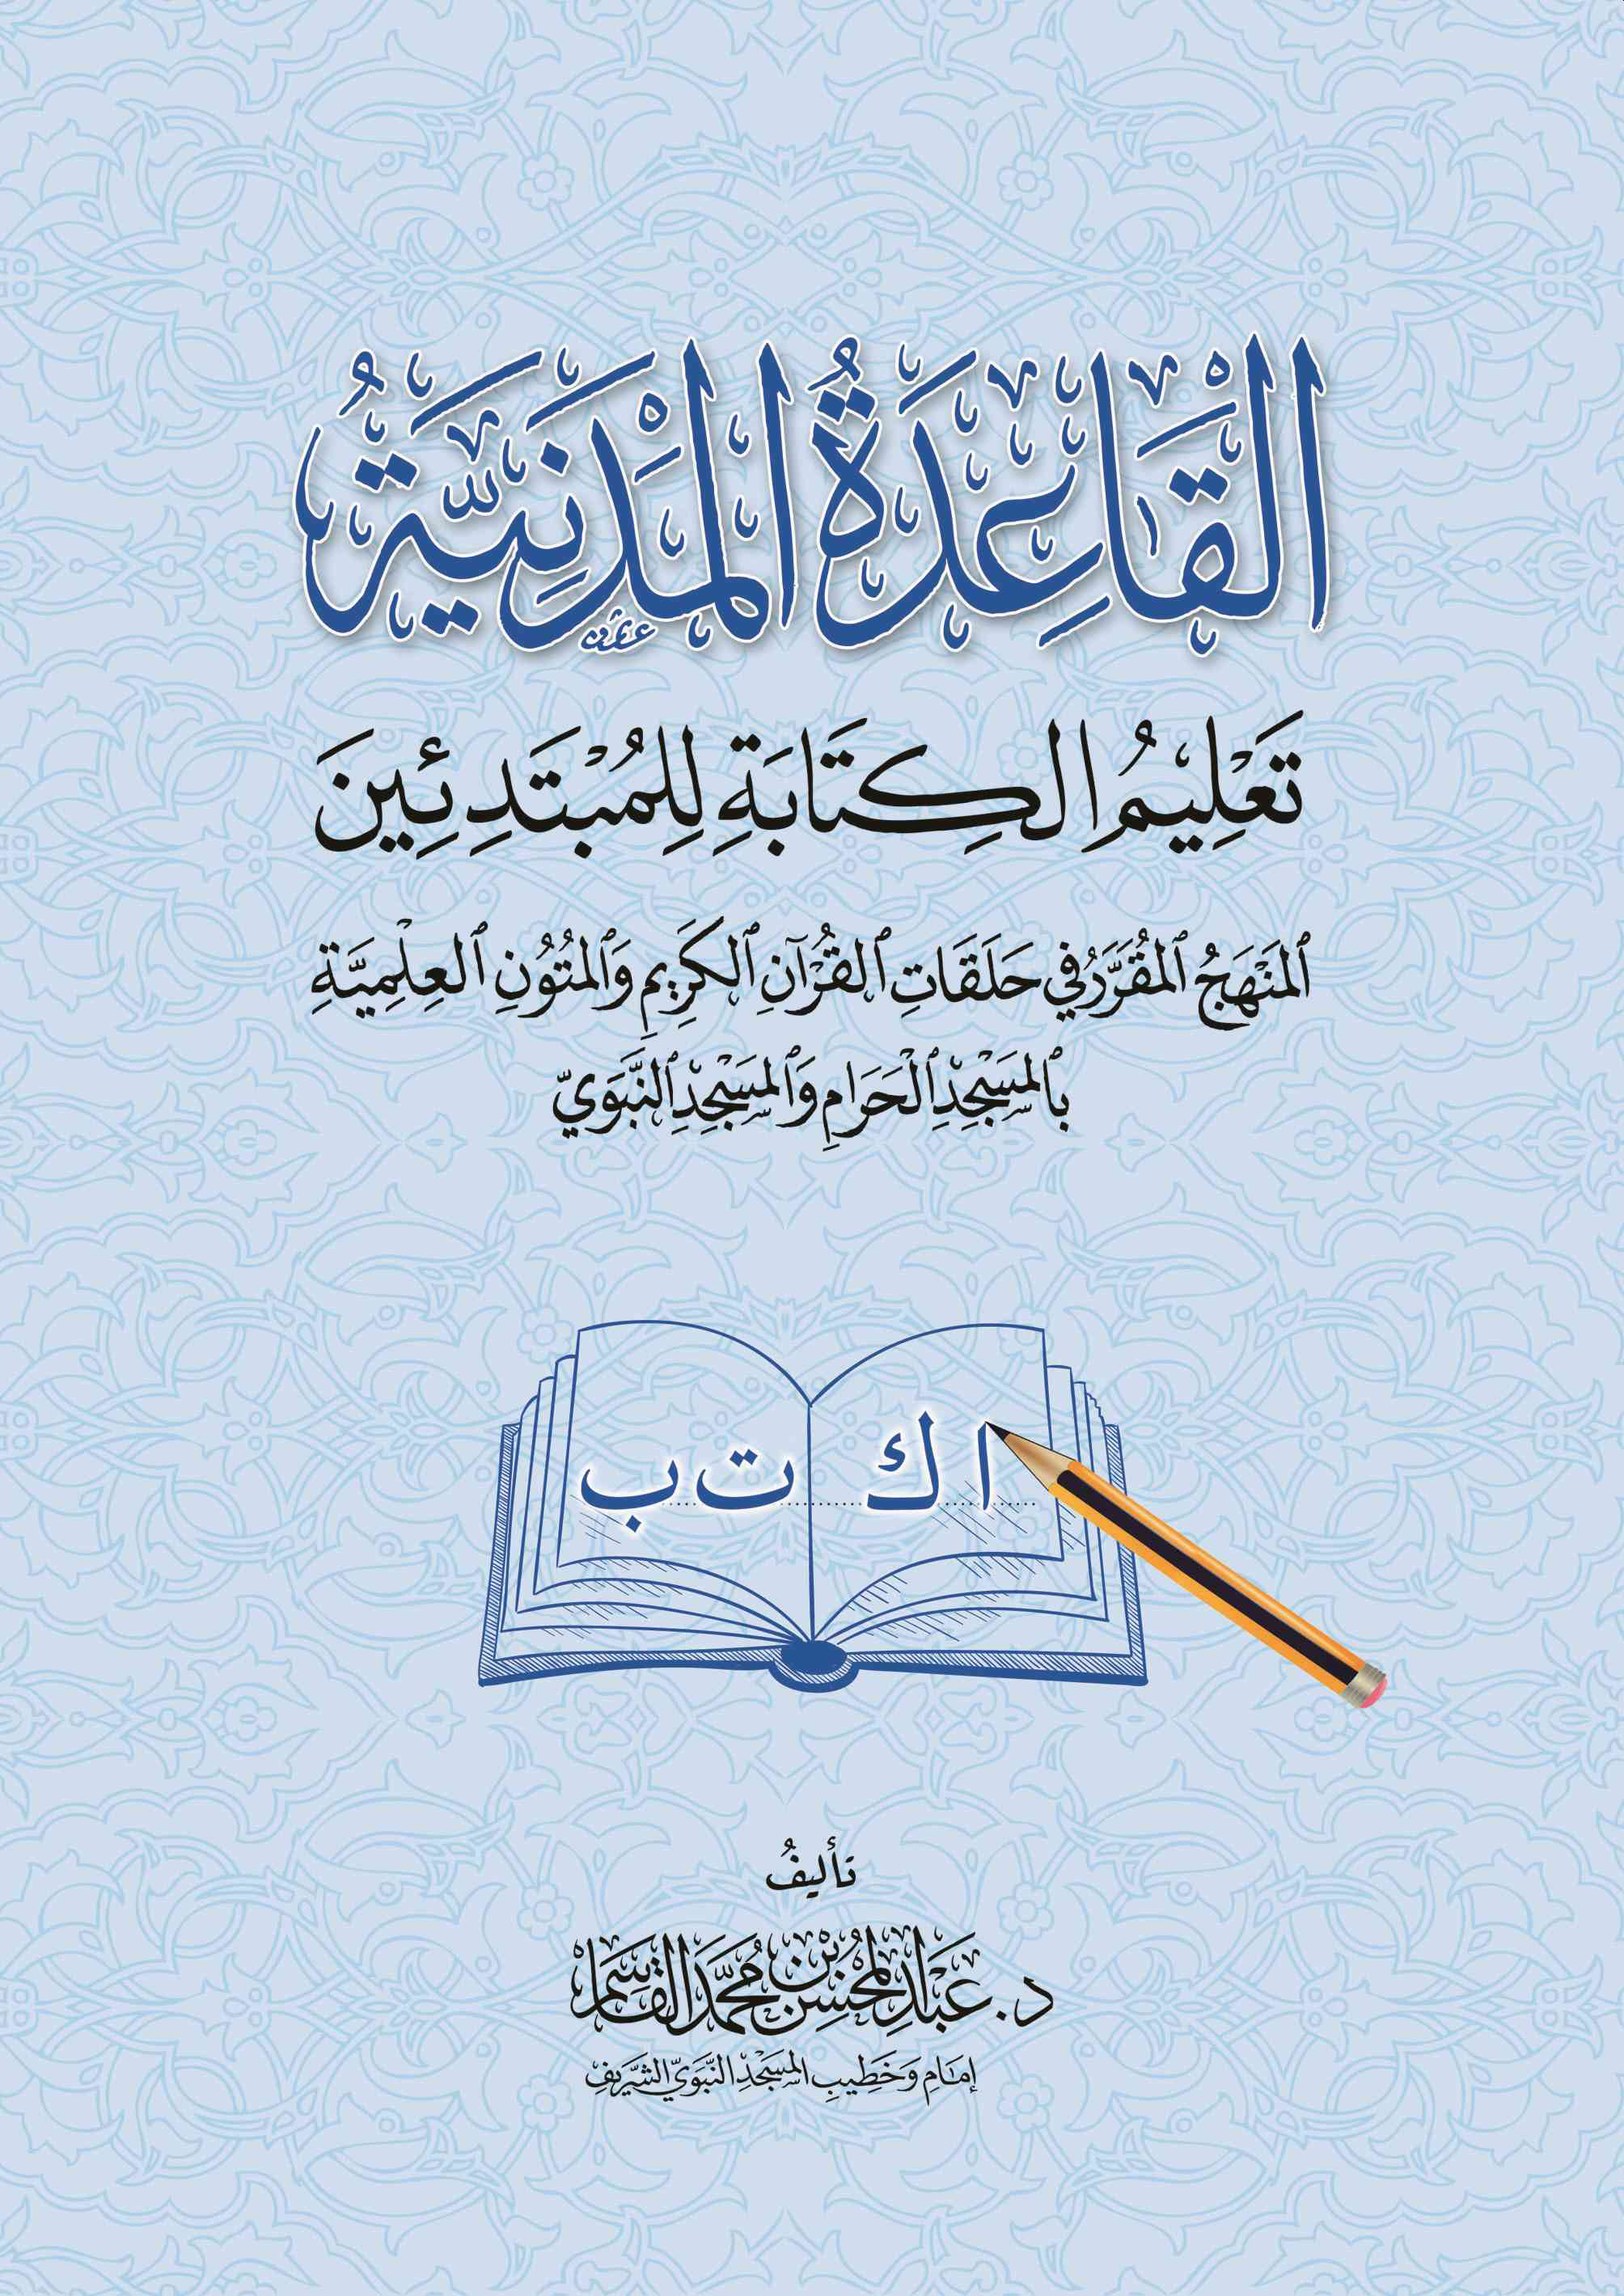 القَاعِدَةُ المَدَنِيَّةُ
تَعْلِيمُ الكِتَابَةِ لِلْمُبْتَدِئِينَ
ٱلمَنْهَجُ ٱلمُقَرَّرُ فِي حَلَقَاتِ ٱلقُرْآنِ ٱلكَرِيمِ وَٱلمُتُونِ ٱلعِلْمِيَّةِ
بِٱلمَسْجِدِ ٱلْحَرَامِ وَٱلمَسْجِدِ ٱلنَّبَوِيِّ
ا ك ت ب
تأليفُ
د. عَبْدِ المُحْسِنِ بْنِ مُحَمَّدٍ القَاسِمِ
إمَامِ وَخَطِيبِ المَسْجِدِ النَّبَوِيِّ الشَّرِيفِ